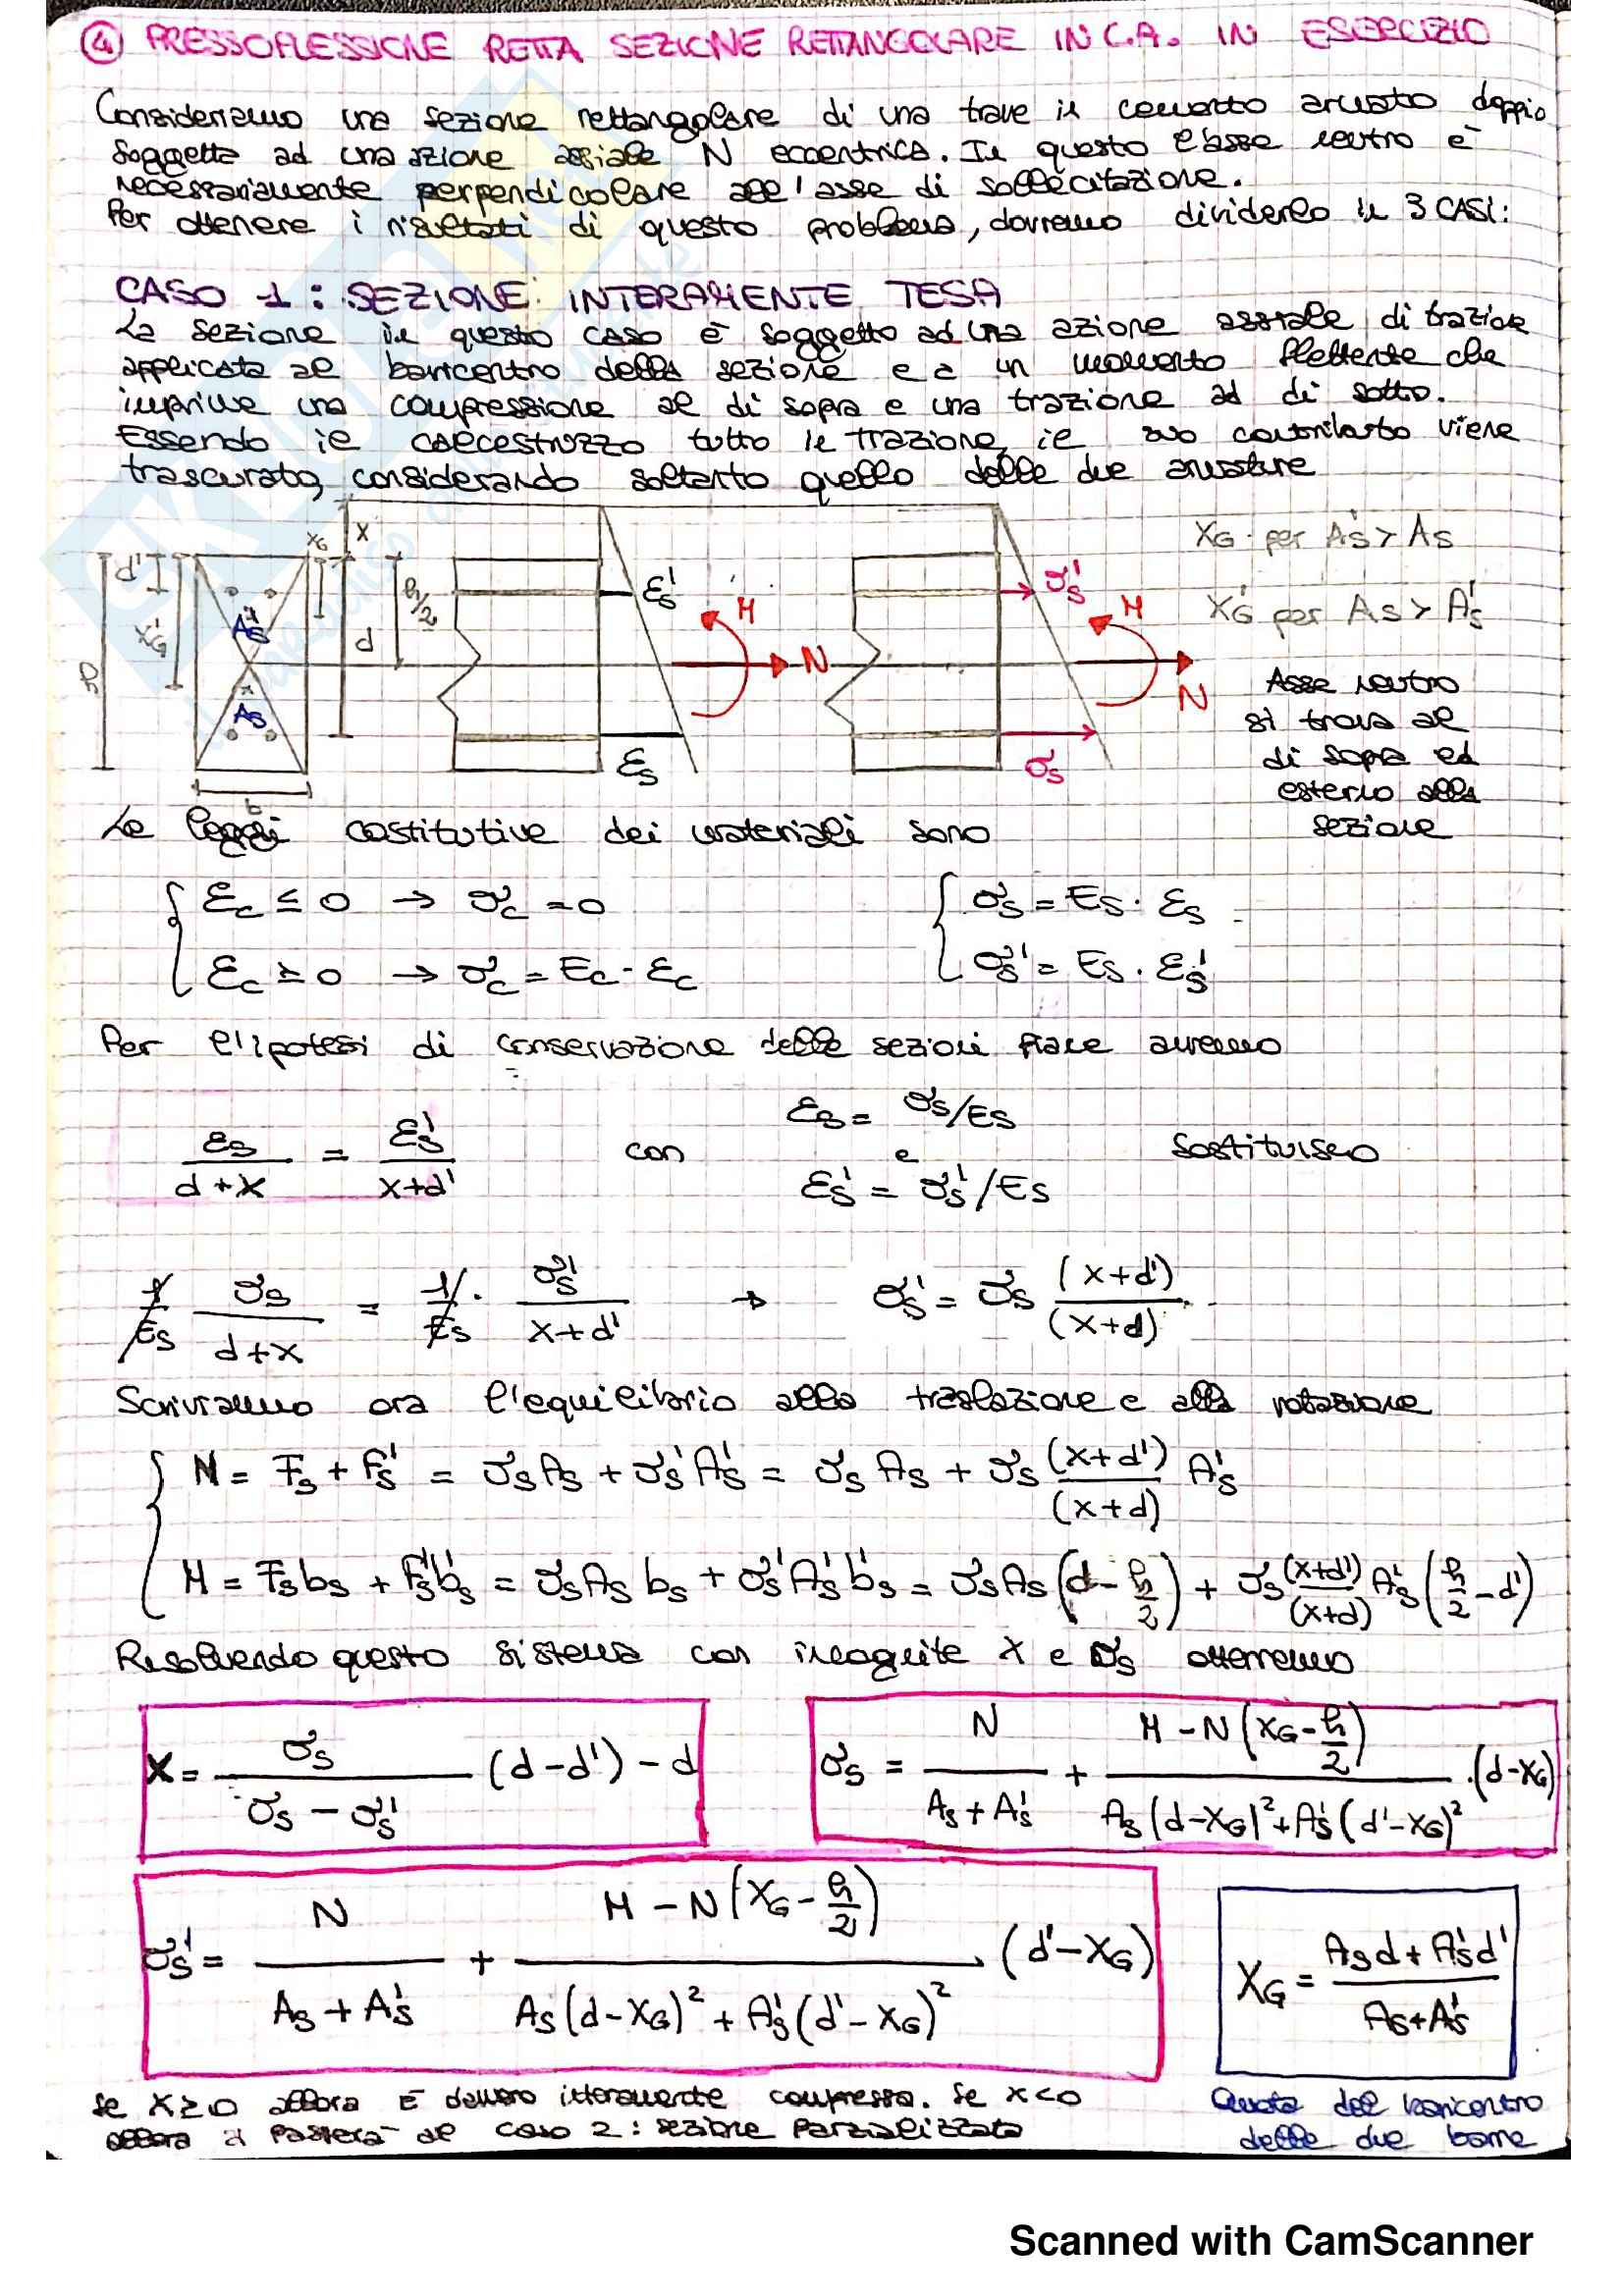 ④ PRESSOFLESSIONE RETTA SEZIONE RETTANGOLARE IN C.A. IN ESERCIZIO
Consideriamo una sezione rettangolare di una trave in cemento armato doppio
soggetta ad una azione assiale N eccentrica. In questo l'asse neutro è
necessariamente perpendicolare all'asse di sollecitazione.
Per ottenere i risultati di questo problema, dovremo dividerlo in 3 CASI:
CASO 1: SEZIONE INTERAMENTE TESA
La sezione in questo caso è soggetto ad una azione assiale di trazione
applicata al baricentro della sezione e a un momento flettente che
imprime una compressione al di sopra e una trazione ad di sotto.
Essendo il calcestruzzo tutto in trazione, il suo contributo viene
trascurato, considerando soltanto quello delle due armature
d' X'G h A's As b xG x d h/2
ε's εs M N
σ's σs M N
XG per A's > As
X'G per As > A's
Asse neutro
si trova al
di sopra ed
esterno alla
sezione
Le leggi costitutive dei materiali sono
{ εc ≤ 0 → σc = 0 { σs = Es · εs
εc ≥ 0 → σc = Ec · εc σ's = Es · ε's
Per l'ipotesi di conservazione delle sezioni piane avremo
εs/(d+x) = ε's/(x+d') con εs = σs/Es e ε's = σ's/Es sostituisco
1/Es σs/(d+x) = 1/Es · σ's/(x+d') → σ's = σs (x+d')/(x+d)
Scriviamo ora l'equilibrio alla traslazione e alla rotazione
{ N = Fs + F's = σsAs + σ'sA's = σs As + σs (x+d')/(x+d) A's
M = Fsbs + F'sb's = σsAs bs + σ'sA'sb's = σsAs (d - h/2) + σs (x+d')/(x+d) A's (h/2 - d')
Risolvendo questo sistema con incognite x e σs otterremo
x = σs/(σs - σ's) (d-d') - d
σs = N/(As + A's) + (M - N(XG - h/2))/(As(d-XG)² + A's(d'-XG)²) · (d-XG)
σ's = N/(As + A's) + (M - N(XG - h/2))/(As(d-XG)² + A's(d'-XG)²) · (d'-XG)
XG = (Asd + A'sd')/(As+A's)
Se x≥0 allora è davvero interamente compressa. Se x<0
allora si passerà al caso 2: sezione parzializzata
Quota del baricentro
delle due barre
Scanned with CamScanner